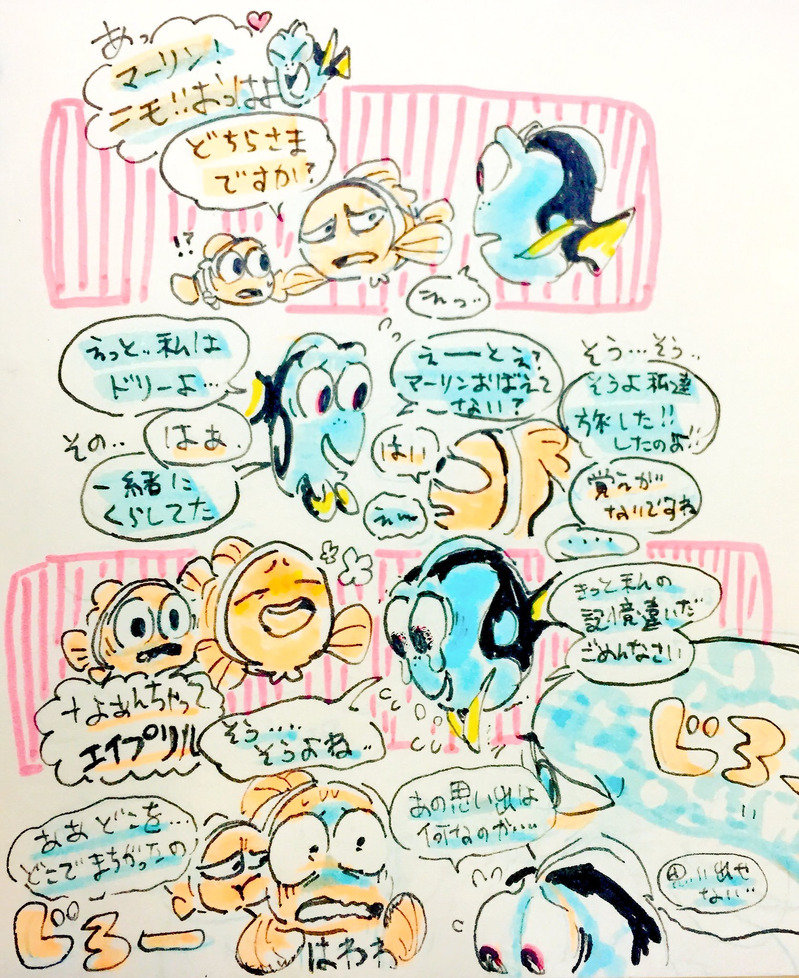 あっ
マーリン!
ニモ!!おっはよ
どちらさま
ですか?
!?
えっ..
えっと..私は
ドリーよ…
はぁ.
その..
一緒に
くらしてた
えーとえ?
マーリンおぼえて
ない?
はい
えー
そう…そう..
そうよ私達
旅した!!
したのよ!!
覚えが
ないですね
....
きっと私の
記憶違いだ
ごめんなさい
なよあんちゃって
エイプリル
そう….
そうよね..
じろ、
あの思い出は
何なのか….
ああどこを…
どこでまちがったの
じろー
はわわ
思い出せ
ない…